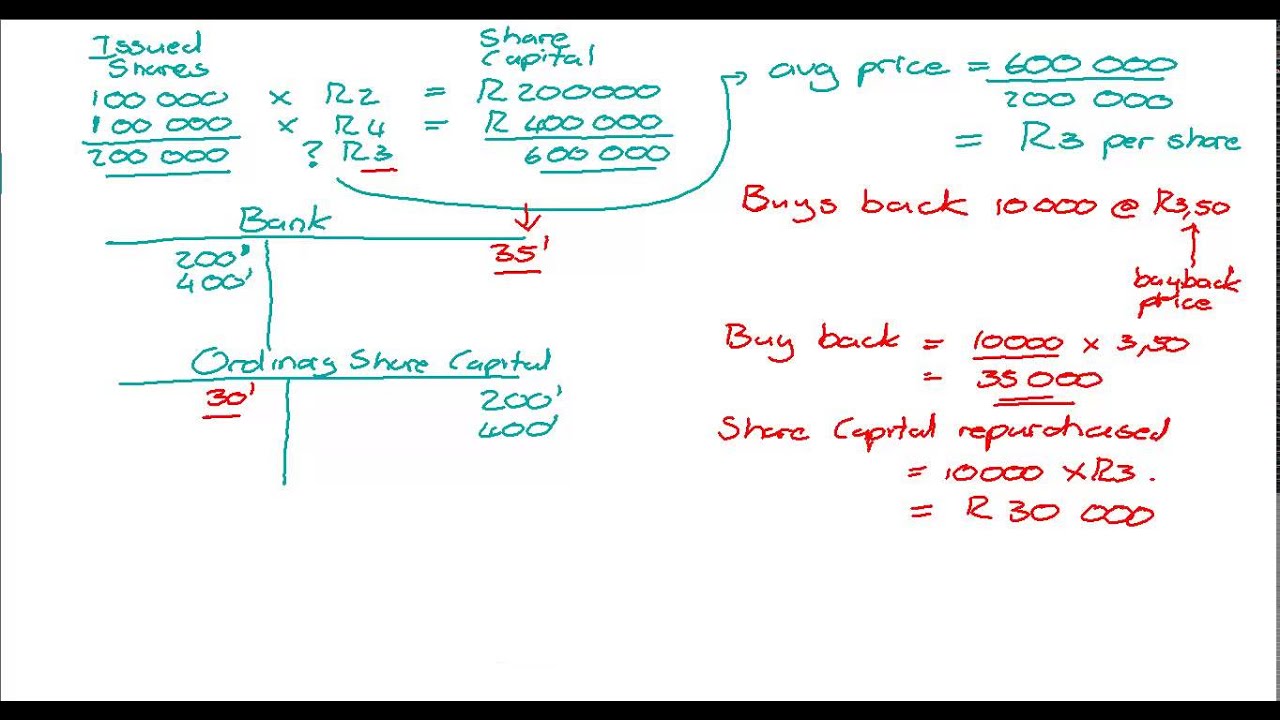 Issued Shares
Share Capital
100 000 x R2 = R 200000
100 000 x R4 = R 400 000
200 000 ? R3 600 000
avg price = 600 000
200 000
= R3 per share
Bank
200' 35'
400'
Ordinary Share Capital
30' 200'
400'
Buys back 10000 @ R3,50
buyback
price
Buy back = 10000 x 3,50
= 35 000
Share Capital repurchased
= 10000 x R3.
= R 30 000